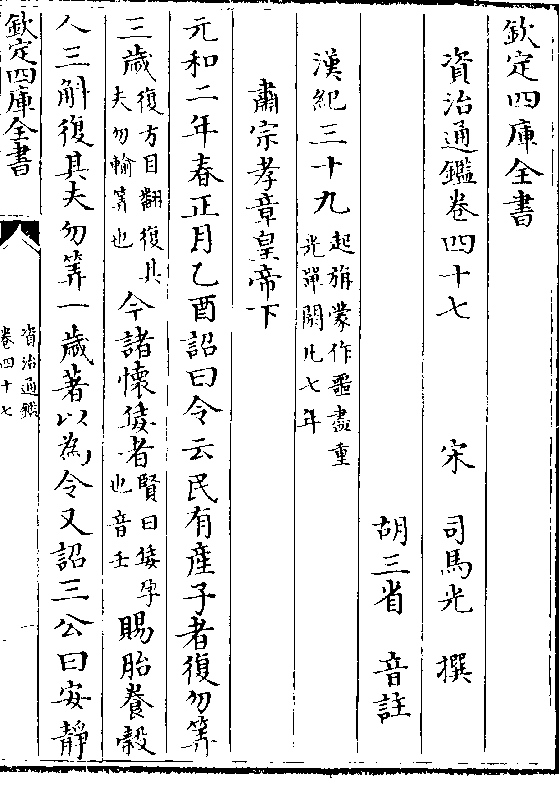 欽定四庫全書
資治通鑑卷四十七
宋 司馬光 撰
胡三省 音註
漢紀三十九起旃蒙作噩盡重光單閼凡七年
肅宗孝章皇帝下
元和二年春正月乙酉詔曰令云民有産子者復勿筭
三歲復方目翻復其夫勿輸筭也今諸懷㛛者賢曰㛛孕也音壬賜胎養穀
人三斛復其夫勿筭一歲著以為令又詔三公曰安靜
欽定四庫全書
資治通鑑
卷四十七